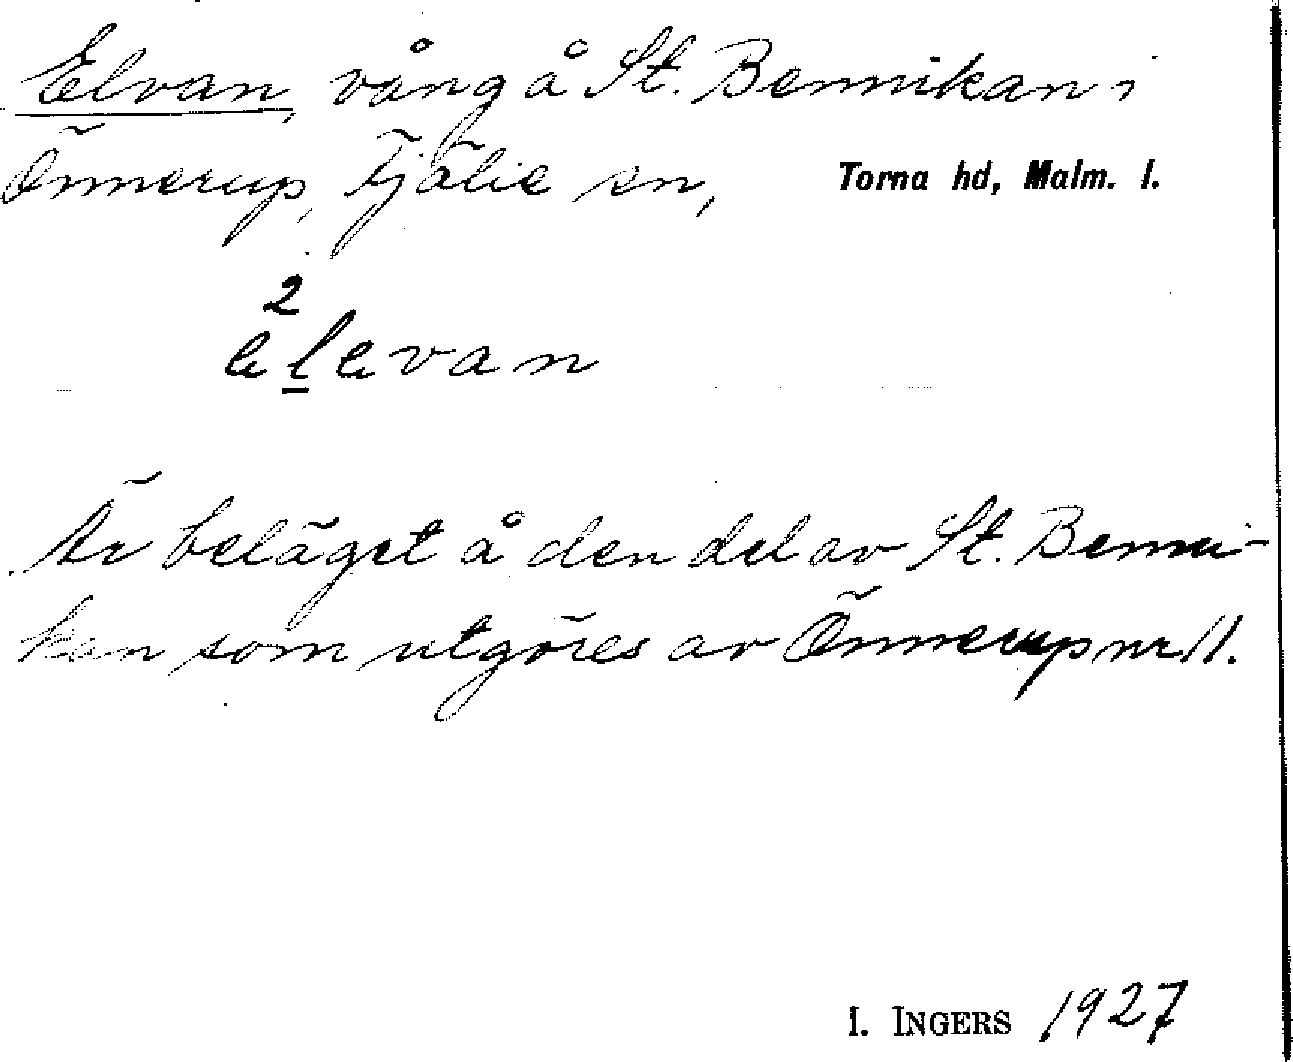 Elvan, vång å St. Bennikan i
Önnerup, Fjälie sn, Torna hd, Malm. l.
2
elevan
Är beläget å den del av St. Benni-
kan som utgöres av Önnerup nr 11.
I. INGERS 1927